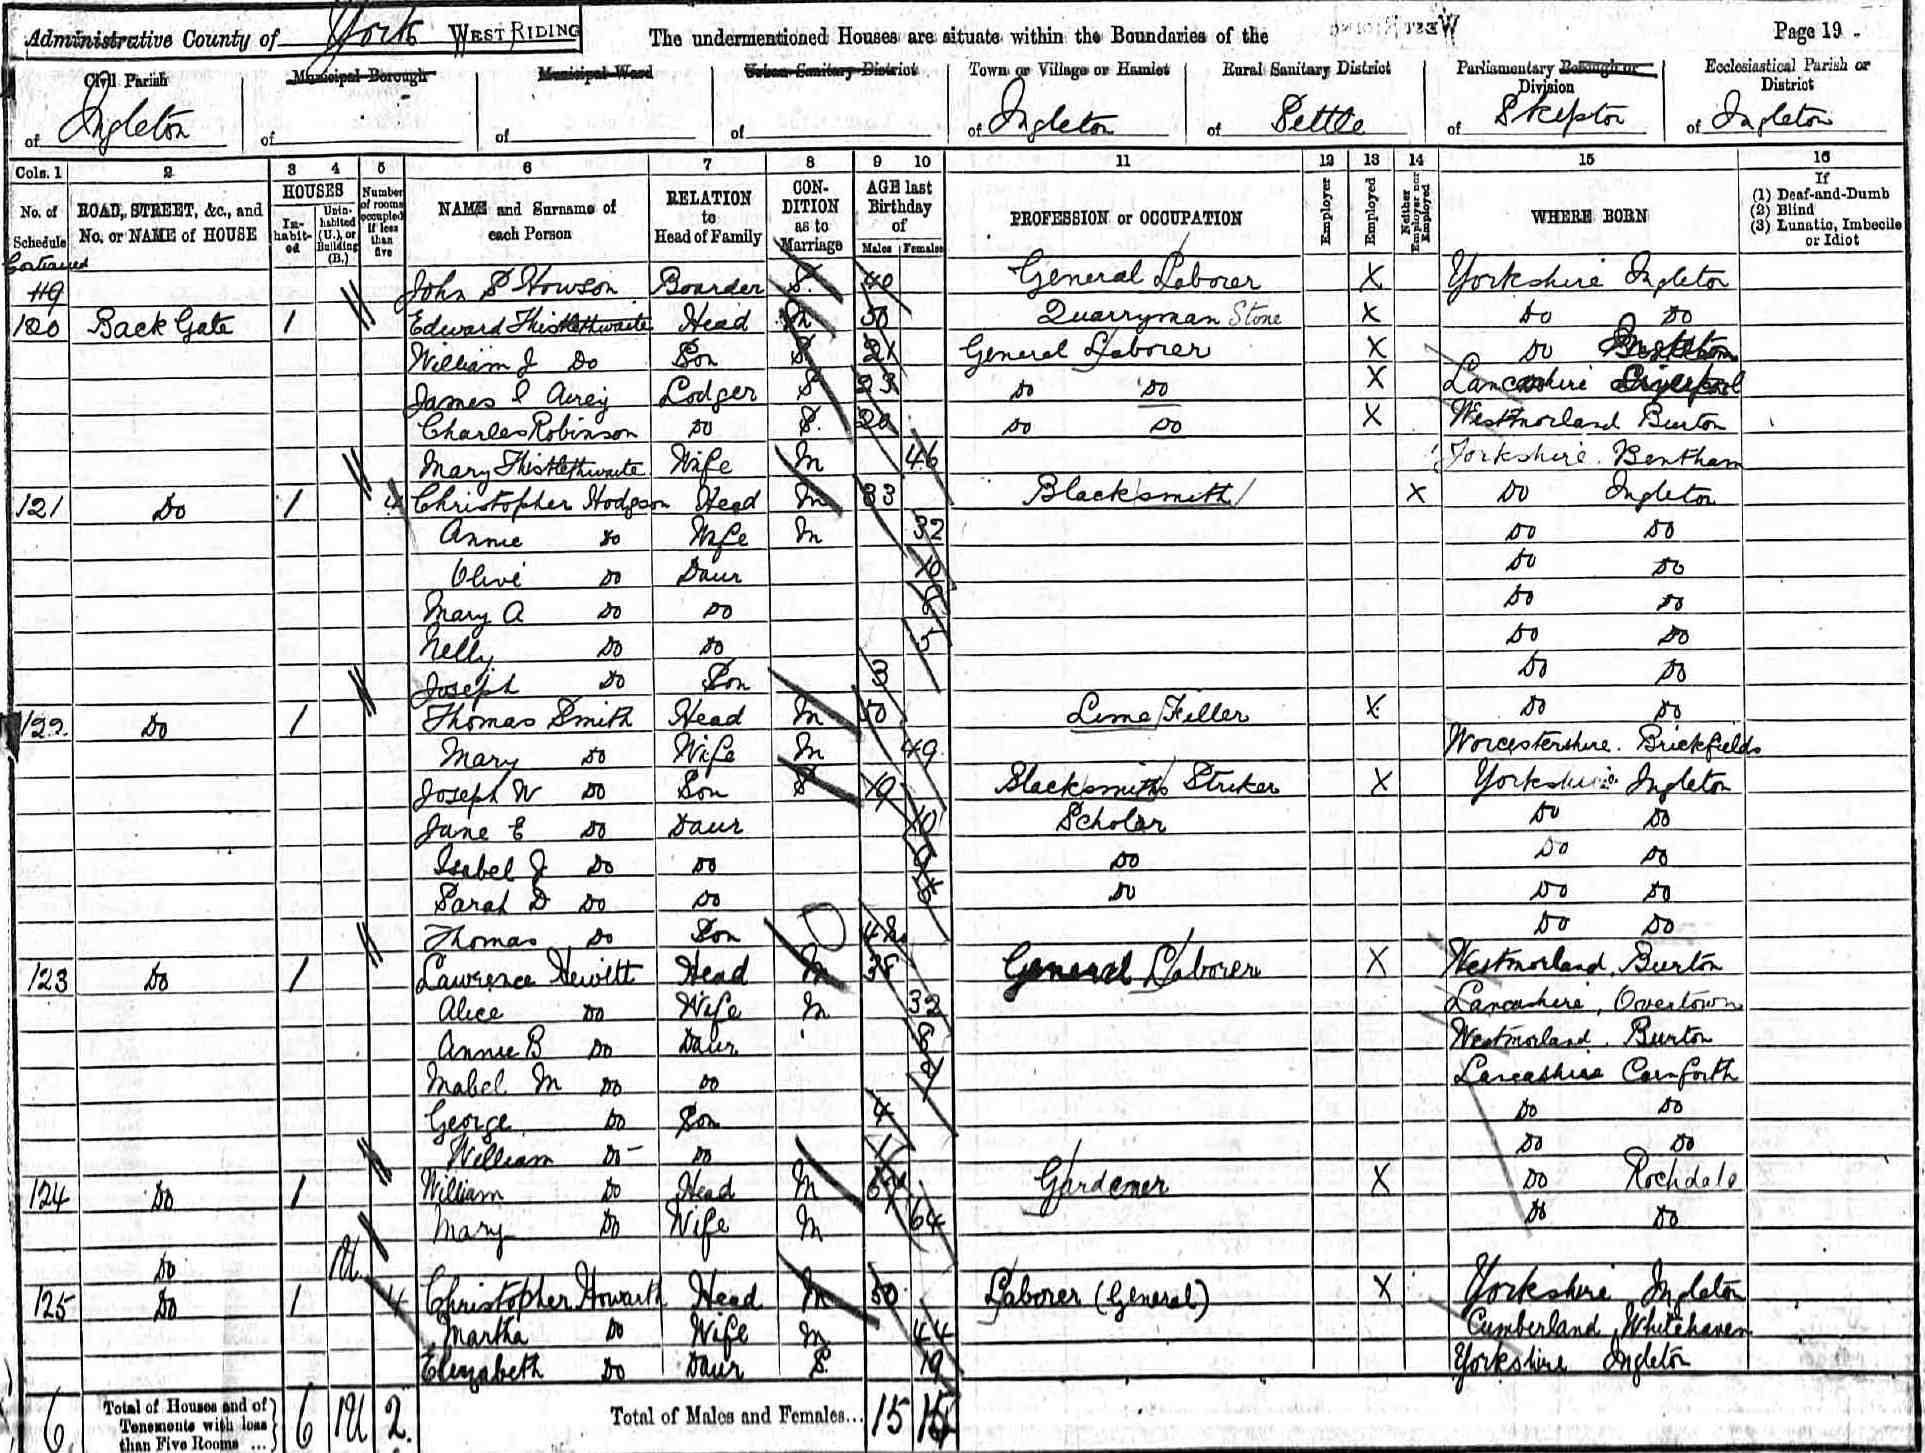 Administrative County of York WEST RIDING The undermentioned Houses are situate within the Boundaries of the Page 19
Civil Parish Municipal Borough Municipal Ward Urban Sanitary District Town or Village or Hamlet Rural Sanitary District Parliamentary Borough or Division Ecclesiastical Parish or District
of Ingleton of of of of Ingleton of Settle of Skipton of Ingleton
Cols. 1 2 3 4 5 6 7 8 9 10 11 12 13 14 15 16
No. of Schedule ROAD, STREET, &c., and No. or NAME of HOUSE HOUSES Inhabited Uninhabited (U.), or Building (B.) Number of rooms occupied if less than five NAME and Surname of each Person RELATION to Head of Family CONDITION as to Marriage AGE last Birthday of Males Females PROFESSION or OCCUPATION Employer Employed Neither Employer nor Employed WHERE BORN If (1) Deaf-and-Dumb (2) Blind (3) Lunatic, Imbecile or Idiot
Continued
119 John S Howson Boarder S. 40 General Laborer X Yorkshire Ingleton
120 Back Gate 1 Edward Thistlethwaite Head M 50 Quarryman Stone X Do Do
William J Do Son S 21 General Laborer X Do
James Airey Lodger S 23 Do Do X Lancashire
Charles Robinson Do S. 20 Do Do X Westmorland Burton
Mary Thistlethwaite Wife M 46 Yorkshire. Bentham
121 Do 1 4 Christopher Hodgson Head M 33 Blacksmith X Do Ingleton
Annie Do Wife M 32 Do Do
Olive Do Daur 10 Do Do
Mary A Do Do 8 Do Do
Nelly Do Do 5 Do Do
Joseph Do Son 3 Do Do
122 Do 1 Thomas Smith Head M 50 Lime Filler X Do Do
Mary Do Wife M 49 Worcestershire. Brickfields
Joseph W Do Son S 19 Blacksmiths Striker X Yorkshire Ingleton
Jane E Do Daur 10 Scholar Do Do
Isabel J Do Do Do Do Do
Sarah D Do Do Do Do Do
Thomas Do Son Do Do
123 Do 1 Lawrence Hewitt Head M 38 General Laborer X Westmorland, Burton
Alice Do Wife M 32 Lancashire, Overtown
Annie B Do Daur 8 Westmorland. Burton
Mabel M Do Do Lancashire Carnforth
George Do Son 4 Do Do
William Do Do 1 Do Do
124 Do 1 William Do Head M Gardener X Do Rochdale
Mary Do Wife M 64 Do Do
Do 1U
125 Do 1 4 Christopher Howarth Head M 50 Laborer (General) X Yorkshire Ingleton
Martha Do Wife M 44 Cumberland Whitehaven
Elizabeth Do Daur S. 19 Yorkshire Ingleton
6 Total of Houses and of Tenements with less than Five Rooms ... 6 1U 2. Total of Males and Females... 15 15